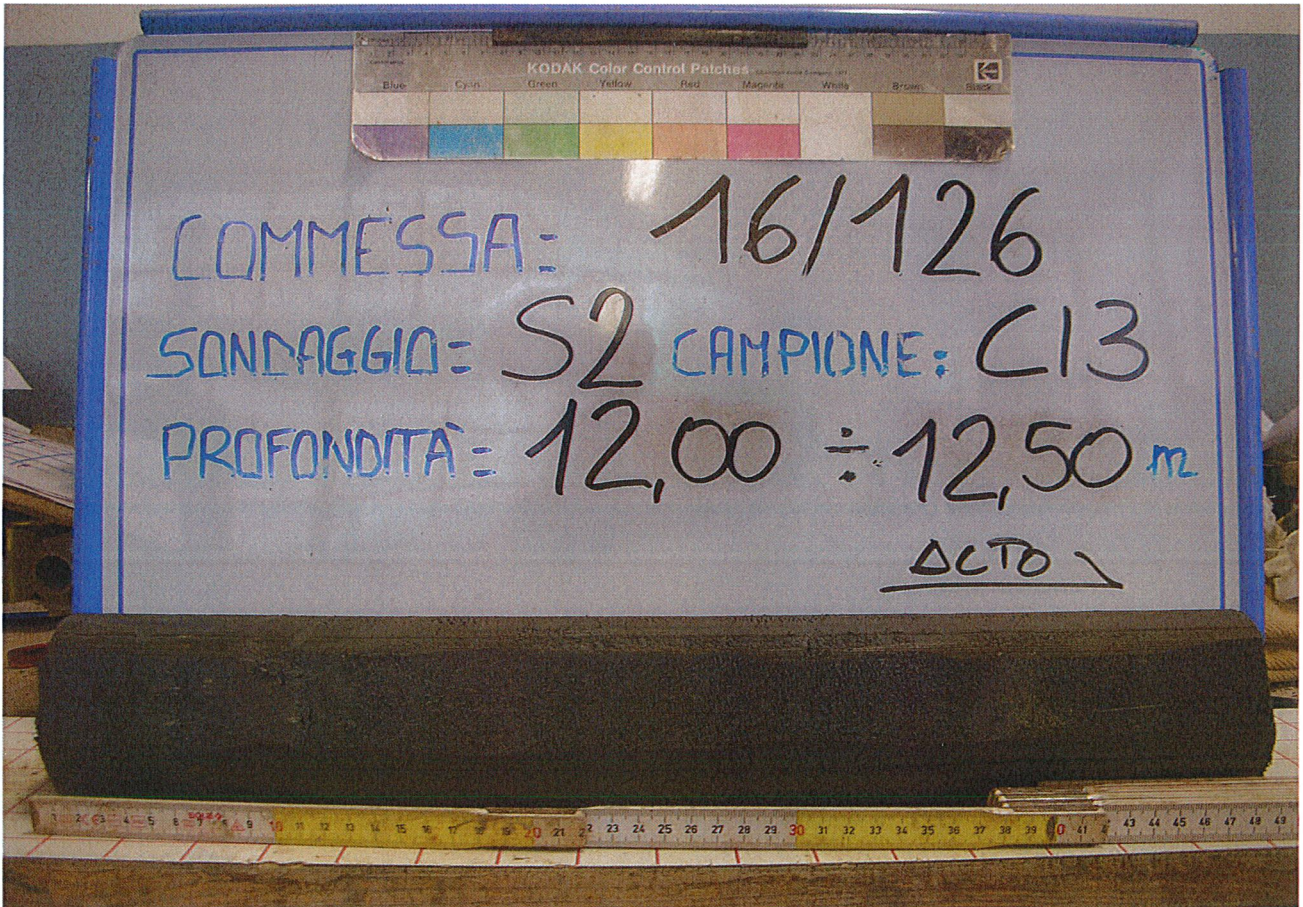 KODAK Color Control Patches
Blue Cyan Green Yellow Red Magenta White Brown Black
COMMESSA: 16/126
SONDAGGIO: S2 CAMPIONE: CI3
PROFONDITÀ: 12,00 ÷ 12,50 m
1 2 3 4 5 6 7 8 9 10 11 12 13 14 15 16 17 18 19 20 21 2 23 24 25 26 27 28 29 30 31 32 33 34 35 36 37 38 39 40 41 43 44 45 46 47 48 49